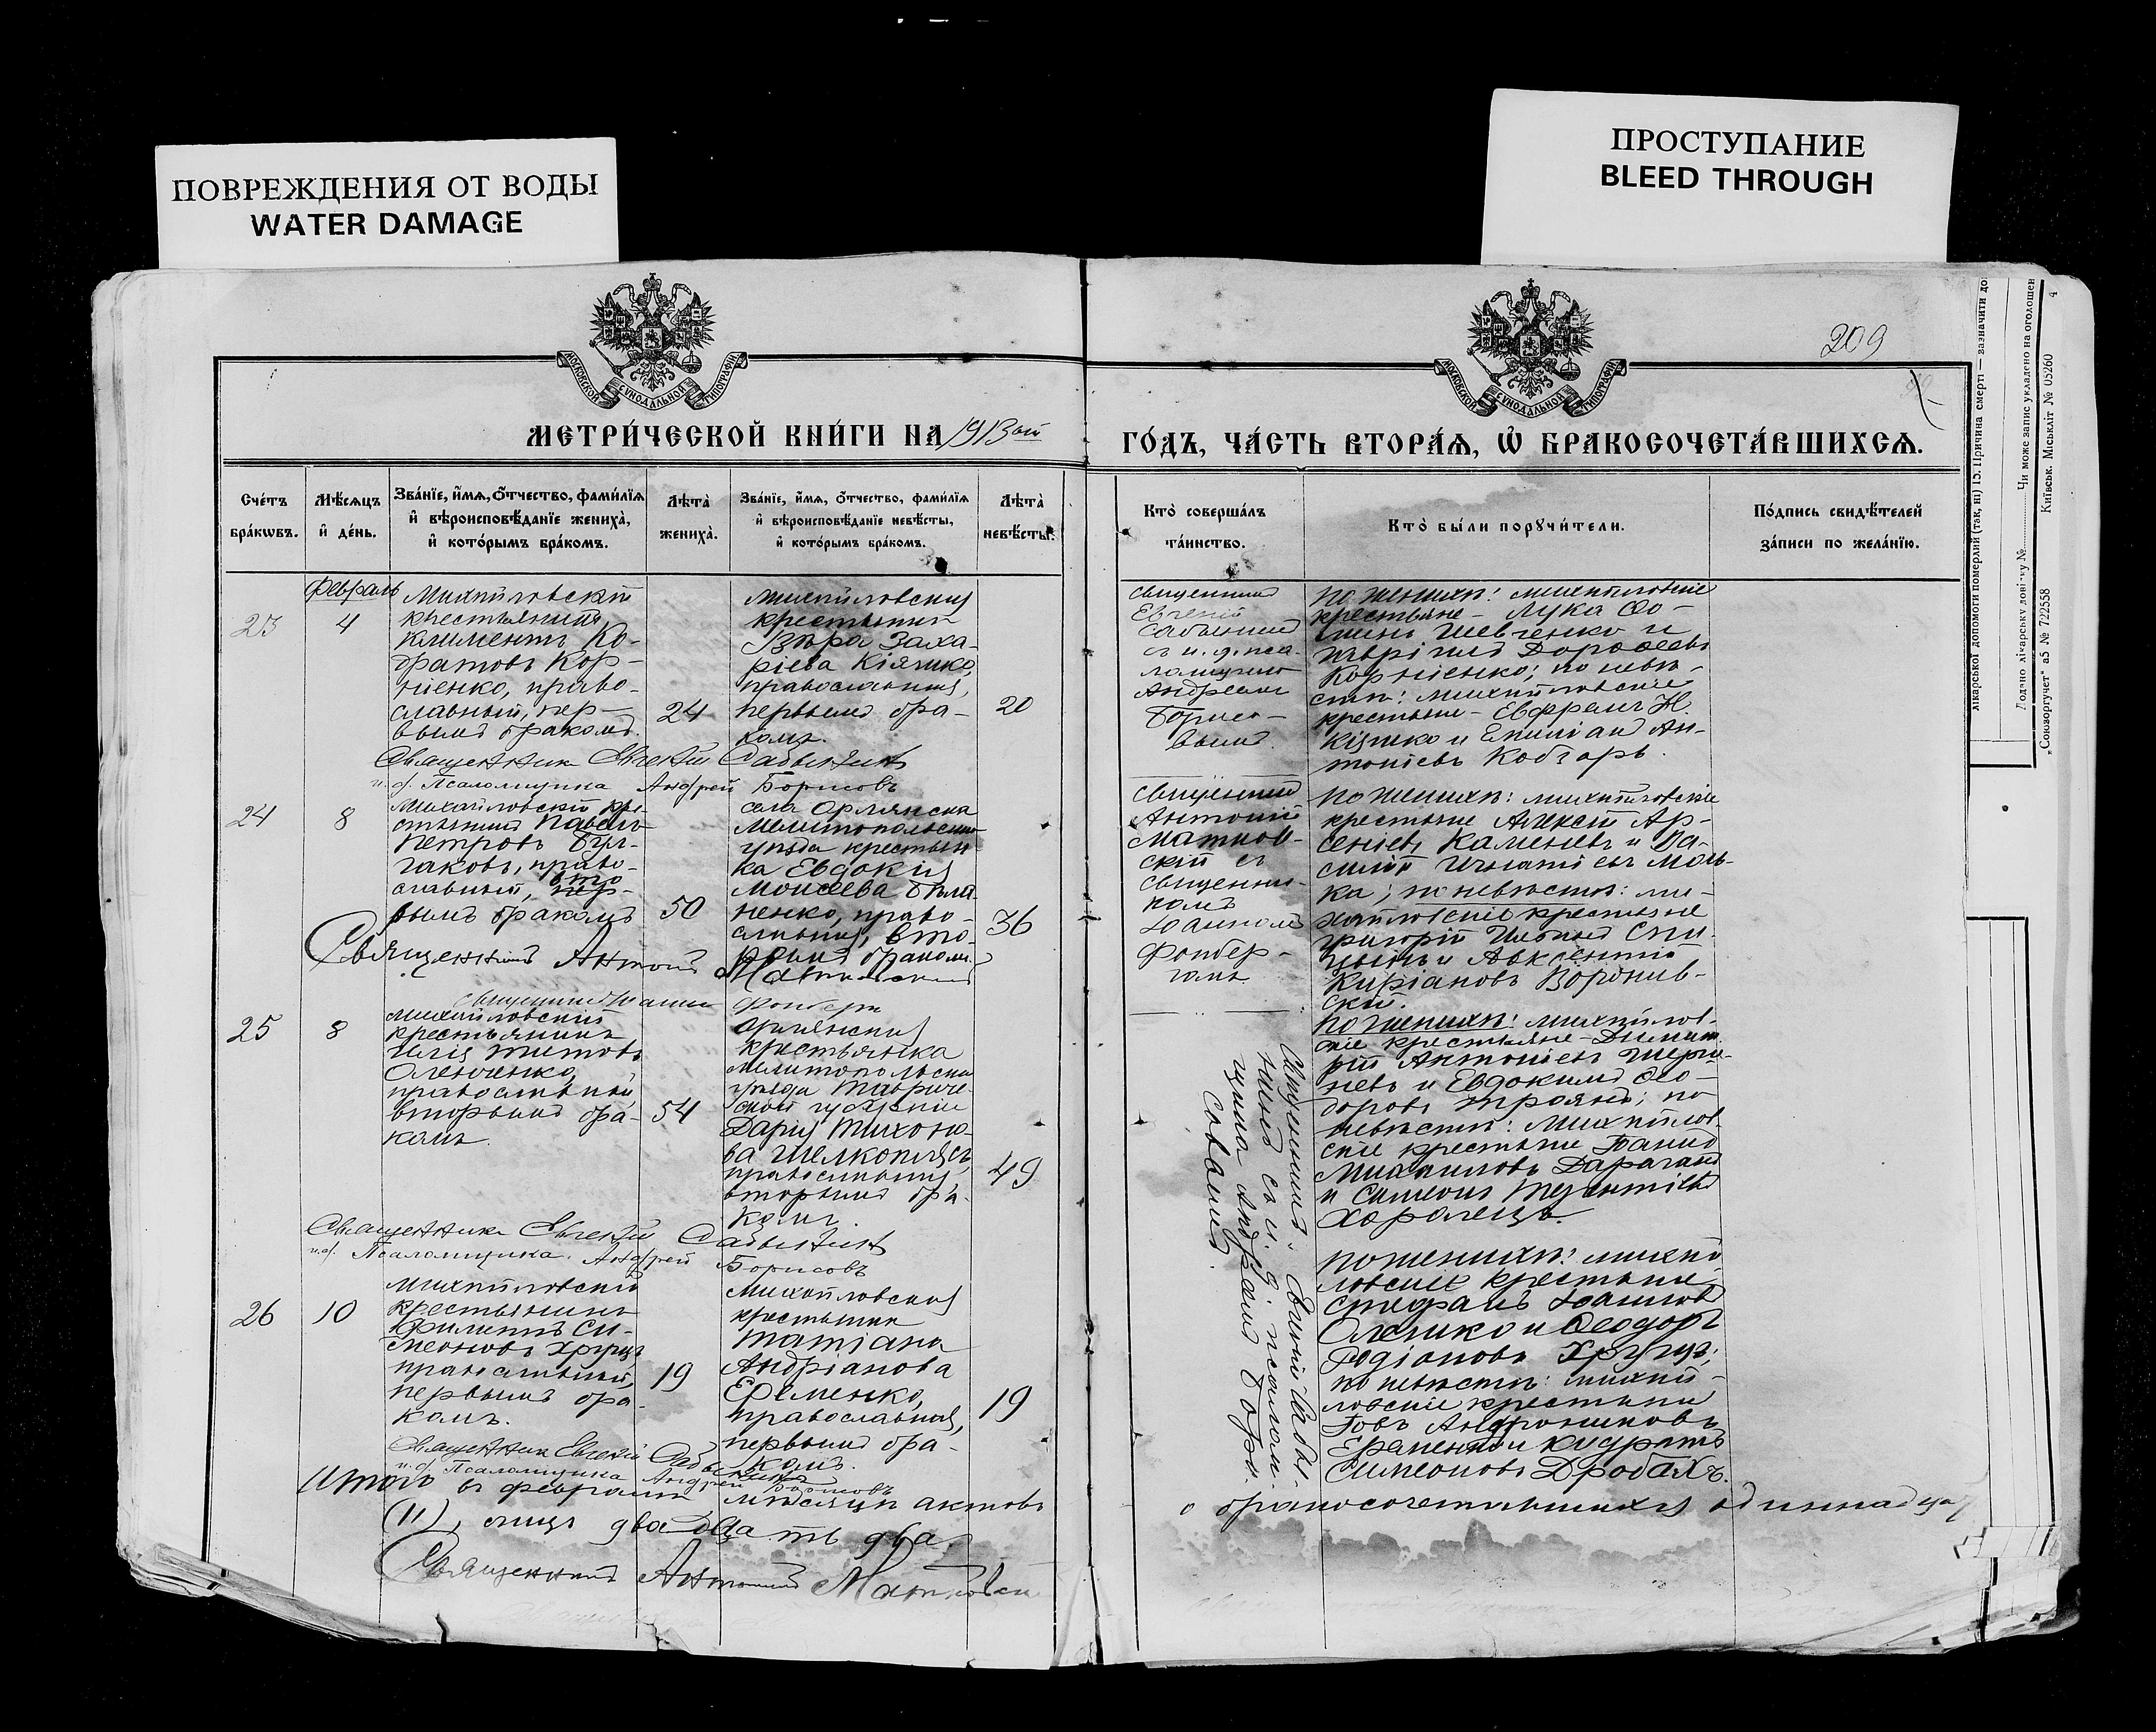 ПОВРЕЖДЕНИЯ ОТ ВОДЫ
WATER DAMAGE
ПРОСТУПАНИЕ
BLEED THROUGH
МОСКОВСКОЙ СУНОДАЛЬНОЙ ТИПОГРАФІИ
МОСКОВСКОЙ СУНОДАЛЬНОЙ ТИПОГРАФІИ
209
МЕТРИ́ЧЕСКОЙ КНИ́ГИ НА 1913ый
ГО́ДЪ, ЧА́СТЬ ВТОРА́Я, Ѿ БРАКОСОЧЕТА́ВШИХСЯ.
Сче́тъ
бра́кѡвъ.
Мѣ́сяцъ
и҆ де́нь.
Зва́нїе, и҆́мя, ѻ҆́тчество, фами́лїя
и҆ вѣроисповѣ́данїе жениха̀,
и҆ кото́рымъ бра́комъ.
Лѣта̀
жениха̀.
Зва́нїе, и҆́мя, ѻ҆́тчество, фами́лїя
и҆ вѣроисповѣ́данїе невѣ́сты,
и҆ кото́рымъ бра́комъ.
Лѣта̀
невѣ́сты.
Кто̀ соверша́лъ
та́инство.
Кто̀ бы́ли порꙋчи́тели.
По́дпись свидѣ́телей
за́писи по жела́нїю.
Февраль
23
4
Михайловскій
крестьянинъ
Климентъ Ко-
дратовъ Кор-
ніенко, право-
славный, пер-
вымъ бракомъ.
24
Михайловская
крестьянка
Вѣра Заха-
ріева Кіяшко,
православная,
первымъ бра-
комъ.
20
Священникъ
Евгеній
Сабынинъ
съ и. д. пса-
ломщика
Андреемъ
Борисо-
вымъ.
По женихѣ: михайловскіе
крестьяне - Лука Ѳо-
минъ Шевченко и
Гавріилъ Дороѳеевъ
Корніенко; по невѣ-
стѣ: михайловскіе
крестьяне - Евфремъ Н.
Кіяшко и Емиліанъ Ан-
тоніевъ Кобзарь.
Священникъ Евгеній Сабынинъ
и. д. Псаломщика Андрей Борисовъ
24
8
Михайловскій кре-
стьянинъ Павелъ
Петровъ Бул-
гаковъ, право-
славный, вто
рымъ бракомъ
50
села Орлянска
Мелитопольскаго
уѣзда крестьян-
ка Евдокія
Моисеева Бѣла-
ненко, право-
славная, вто-
рымъ бракомъ.
36
Священникъ
Антоній
Матков-
скій съ
священни-
комъ
Іоанномъ
Фонбер-
гомъ
По женихѣ: михайловскіе
крестьяне Алексѣй Ар-
сеніевъ Каменевъ и Ва-
силій Игнатіевъ Моль-
ка; по невѣстѣ: ми-
хайловскіе крестьяне
Григорій
и Авксентій
Кирьяновъ
скій.
Священникъ Антоній Матковскій
Священникъ Іоаннъ Фонбергъ
25
8
Михайловскій
крестьянинъ
Илія Титовъ
Оленченко,
православный
вторымъ бра-
комъ.
54
Орлянская
крестьянка
Мелитопольскаго
уѣзда Тавриче-
ской губерніи
Дарія Тихоно-
ва Шелкоплясъ,
православная,
вторымъ бра-
комъ.
49
Священникъ Евгеній Сабы-
нинъ съ и. д. псалом-
щика Андреемъ Бори-
совымъ
По женихѣ: михайлов-
скіе крестьяне - Димит-
рій Антоніевъ
и Евдокимъ Ѳео-
доровъ Троянъ; по
невѣстѣ: Михайлов-
скіе крестьяне
Михаиловъ Дараганъ
и Симеонъ
Хоролецъ.
Священникъ Евгеній Сабынинъ
и.д. Псаломщика. Андрей Борисовъ
26
10
Михайловскій
крестьянинъ
Филиппъ Си-
меоновъ Хрущъ
православный,
первымъ бра-
комъ.
19
Михайловская
крестьянка
Татіана
Андріанова
Ефименко,
православная,
первымъ бра-
комъ.
19
По женихѣ: михай-
ловскіе крестьяне
Стефанъ Іоанновъ
Олешко и Ѳеодоръ
Родіоновъ Хрущъ;
по невѣстѣ: михай-
ловскіе крестьяне
Іовъ Андрониковъ
и Кодратъ
Симеоновъ Дробахъ.
Священникъ Евгеній Сабынинъ
и. д. Псаломщика Андрей Борисовъ
Итого въ февралѣ мѣсяцѣ актовъ
о бракосочетавшихся одиннадцать
(11), лицъ двадцать два.
Священникъ Антоній Матковскій
лікарської допомоги померлий (так, ні) 15. Причина смерті — зазначити до
Чи може запис укладено на оголошен
Київськ. Міськліт № 05260
„Союзоргучет“ а5 № 722558
4